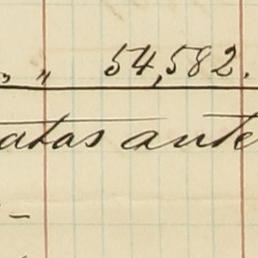 " " 54,582.
atas ante
-